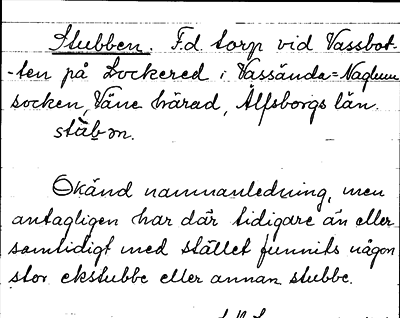 Stubben. F.d. torp vid Vassbot-
-ten på Lockered i Vassända-Naglum
socken, Väne härad, Älfsborgs län.
Okänd namnanledning, men
antagligen har där tidigare än eller
samtidigt med stället funnits någon
stor ekstubbe eller annan stubbe.